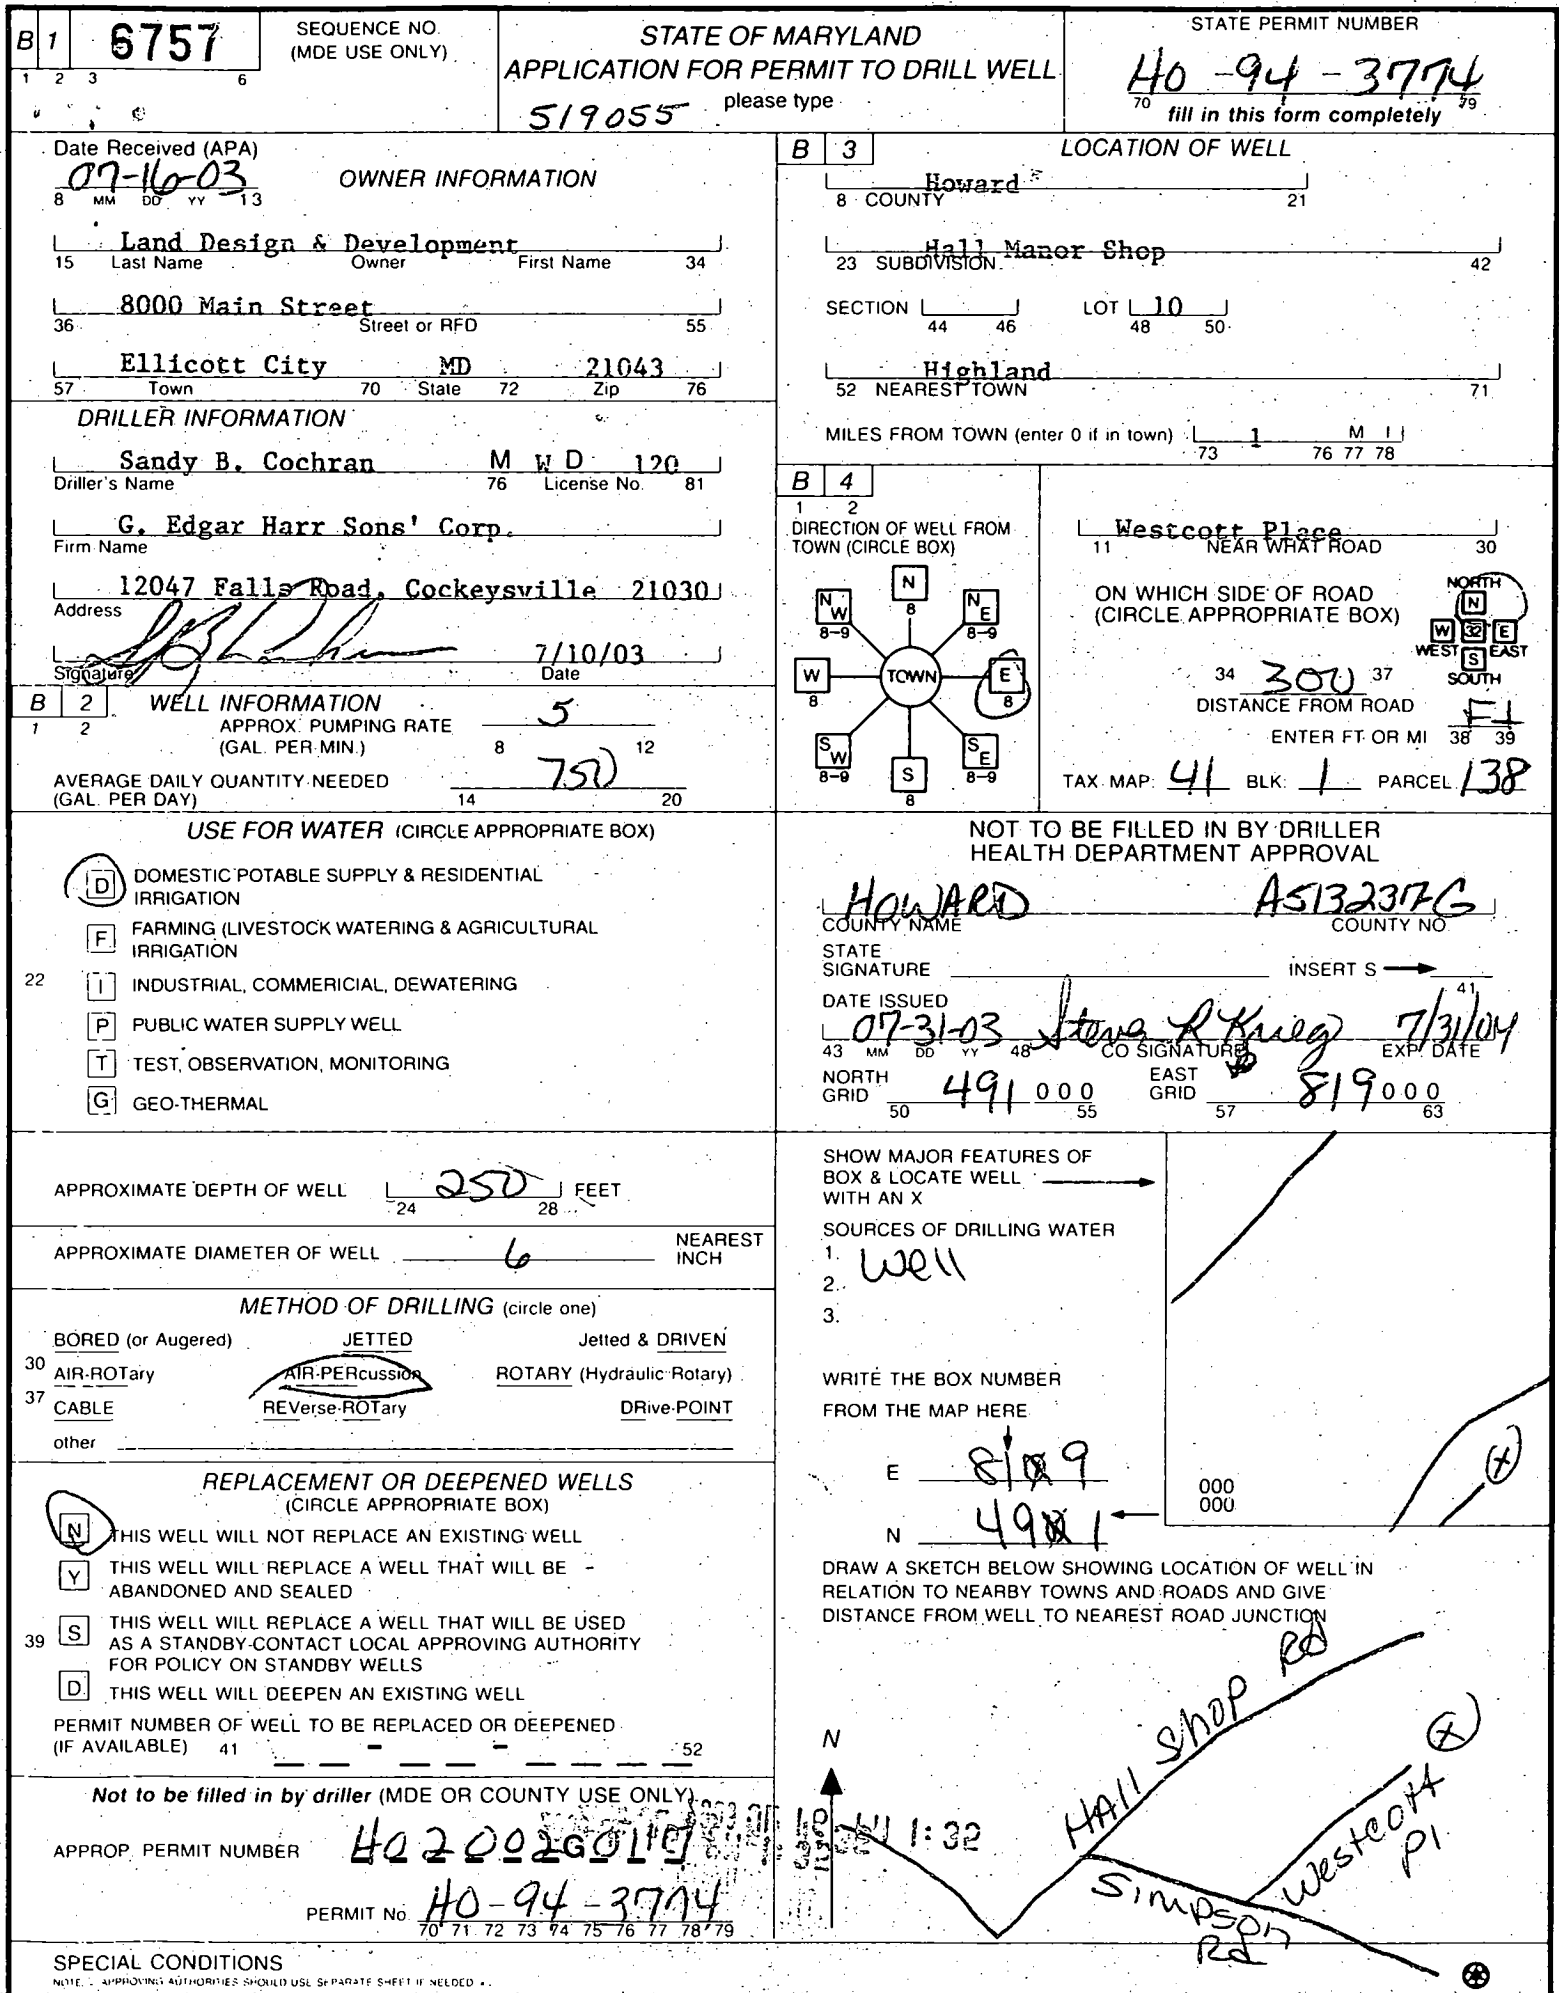 B 1 6757
1 2 3 6
SEQUENCE NO.
(MDE USE ONLY)
STATE OF MARYLAND
APPLICATION FOR PERMIT TO DRILL WELL
please type
519055
STATE PERMIT NUMBER
HO-94-3774
70 79
fill in this form completely
Date Received (APA)
07-16-03
8 MM DD YY 13
OWNER INFORMATION
Land Design & Development
15 Last Name Owner First Name 34
8000 Main Street
36 Street or RFD 55
Ellicott City MD 21043
57 Town 70 State 72 Zip 76
DRILLER INFORMATION
Sandy B. Cochran M W D 120
Driller's Name 76 License No. 81
G. Edgar Harr Sons' Corp.
Firm Name
12047 Falls Road, Cockeysville 21030
Address
7/10/03
Signature Date
B 2 WELL INFORMATION
1 2
APPROX. PUMPING RATE 5
(GAL. PER MIN.) 8 12
AVERAGE DAILY QUANTITY NEEDED 750
(GAL. PER DAY) 14 20
USE FOR WATER (CIRCLE APPROPRIATE BOX)
D DOMESTIC POTABLE SUPPLY & RESIDENTIAL
IRRIGATION
F FARMING (LIVESTOCK WATERING & AGRICULTURAL
IRRIGATION
22 I INDUSTRIAL, COMMERICIAL, DEWATERING
P PUBLIC WATER SUPPLY WELL
T TEST, OBSERVATION, MONITORING
G GEO-THERMAL
APPROXIMATE DEPTH OF WELL 250 FEET
24 28
APPROXIMATE DIAMETER OF WELL 6 NEAREST
INCH
METHOD OF DRILLING (circle one)
BORED (or Augered) JETTED Jetted & DRIVEN
30 AIR-ROTary AIR-PERcussion ROTARY (Hydraulic Rotary)
37 CABLE REVerse-ROTary DRive-POINT
other
REPLACEMENT OR DEEPENED WELLS
(CIRCLE APPROPRIATE BOX)
N THIS WELL WILL NOT REPLACE AN EXISTING WELL
Y THIS WELL WILL REPLACE A WELL THAT WILL BE
ABANDONED AND SEALED
39 S THIS WELL WILL REPLACE A WELL THAT WILL BE USED
AS A STANDBY-CONTACT LOCAL APPROVING AUTHORITY
FOR POLICY ON STANDBY WELLS
D THIS WELL WILL DEEPEN AN EXISTING WELL
PERMIT NUMBER OF WELL TO BE REPLACED OR DEEPENED
(IF AVAILABLE) 41 - - 52
Not to be filled in by driller (MDE OR COUNTY USE ONLY)
APPROP. PERMIT NUMBER HO2002G01
PERMIT No. HO-94-3774
70 71 72 73 74 75 76 77 78 79
SPECIAL CONDITIONS
NOTE - APPROVING AUTHORITIES SHOULD USE SEPARATE SHEET IF NEEDED
B 3 LOCATION OF WELL
Howard
8 COUNTY 21
Hall Manor Shop
23 SUBDIVISION 42
SECTION LOT 10
44 46 48 50
Highland
52 NEAREST TOWN 71
MILES FROM TOWN (enter 0 if in town) 1 M I
73 76 77 78
B 4
1 2
DIRECTION OF WELL FROM
TOWN (CIRCLE BOX)
N
8
NW NE
8-9 8-9
W TOWN E
8 8
SW SE
8-9 8-9
S
8
Westcott Place
11 NEAR WHAT ROAD 30
ON WHICH SIDE OF ROAD
(CIRCLE APPROPRIATE BOX)
NORTH
N
W 32 E
WEST EAST
S
SOUTH
34 300 37
DISTANCE FROM ROAD
ENTER FT OR MI Ft
38 39
TAX MAP: 41 BLK: 1 PARCEL 138
NOT TO BE FILLED IN BY DRILLER
HEALTH DEPARTMENT APPROVAL
HOWARD A513237-G
COUNTY NAME COUNTY NO.
STATE
SIGNATURE INSERT S
41
DATE ISSUED
07-31-03 Steve R Krieg 7/31/04
43 MM DD YY 48 CO SIGNATURE EXP. DATE
NORTH
GRID 491 000
50 55
EAST
GRID 819 000
57 63
SHOW MAJOR FEATURES OF
BOX & LOCATE WELL
WITH AN X
SOURCES OF DRILLING WATER
1. Well
2.
3.
WRITE THE BOX NUMBER
FROM THE MAP HERE
E 819
N 491
000
000
X
DRAW A SKETCH BELOW SHOWING LOCATION OF WELL IN
RELATION TO NEARBY TOWNS AND ROADS AND GIVE
DISTANCE FROM WELL TO NEAREST ROAD JUNCTION
N
1:32
HAll Shop Rd
X
Westcott Pl
Simpson Rd